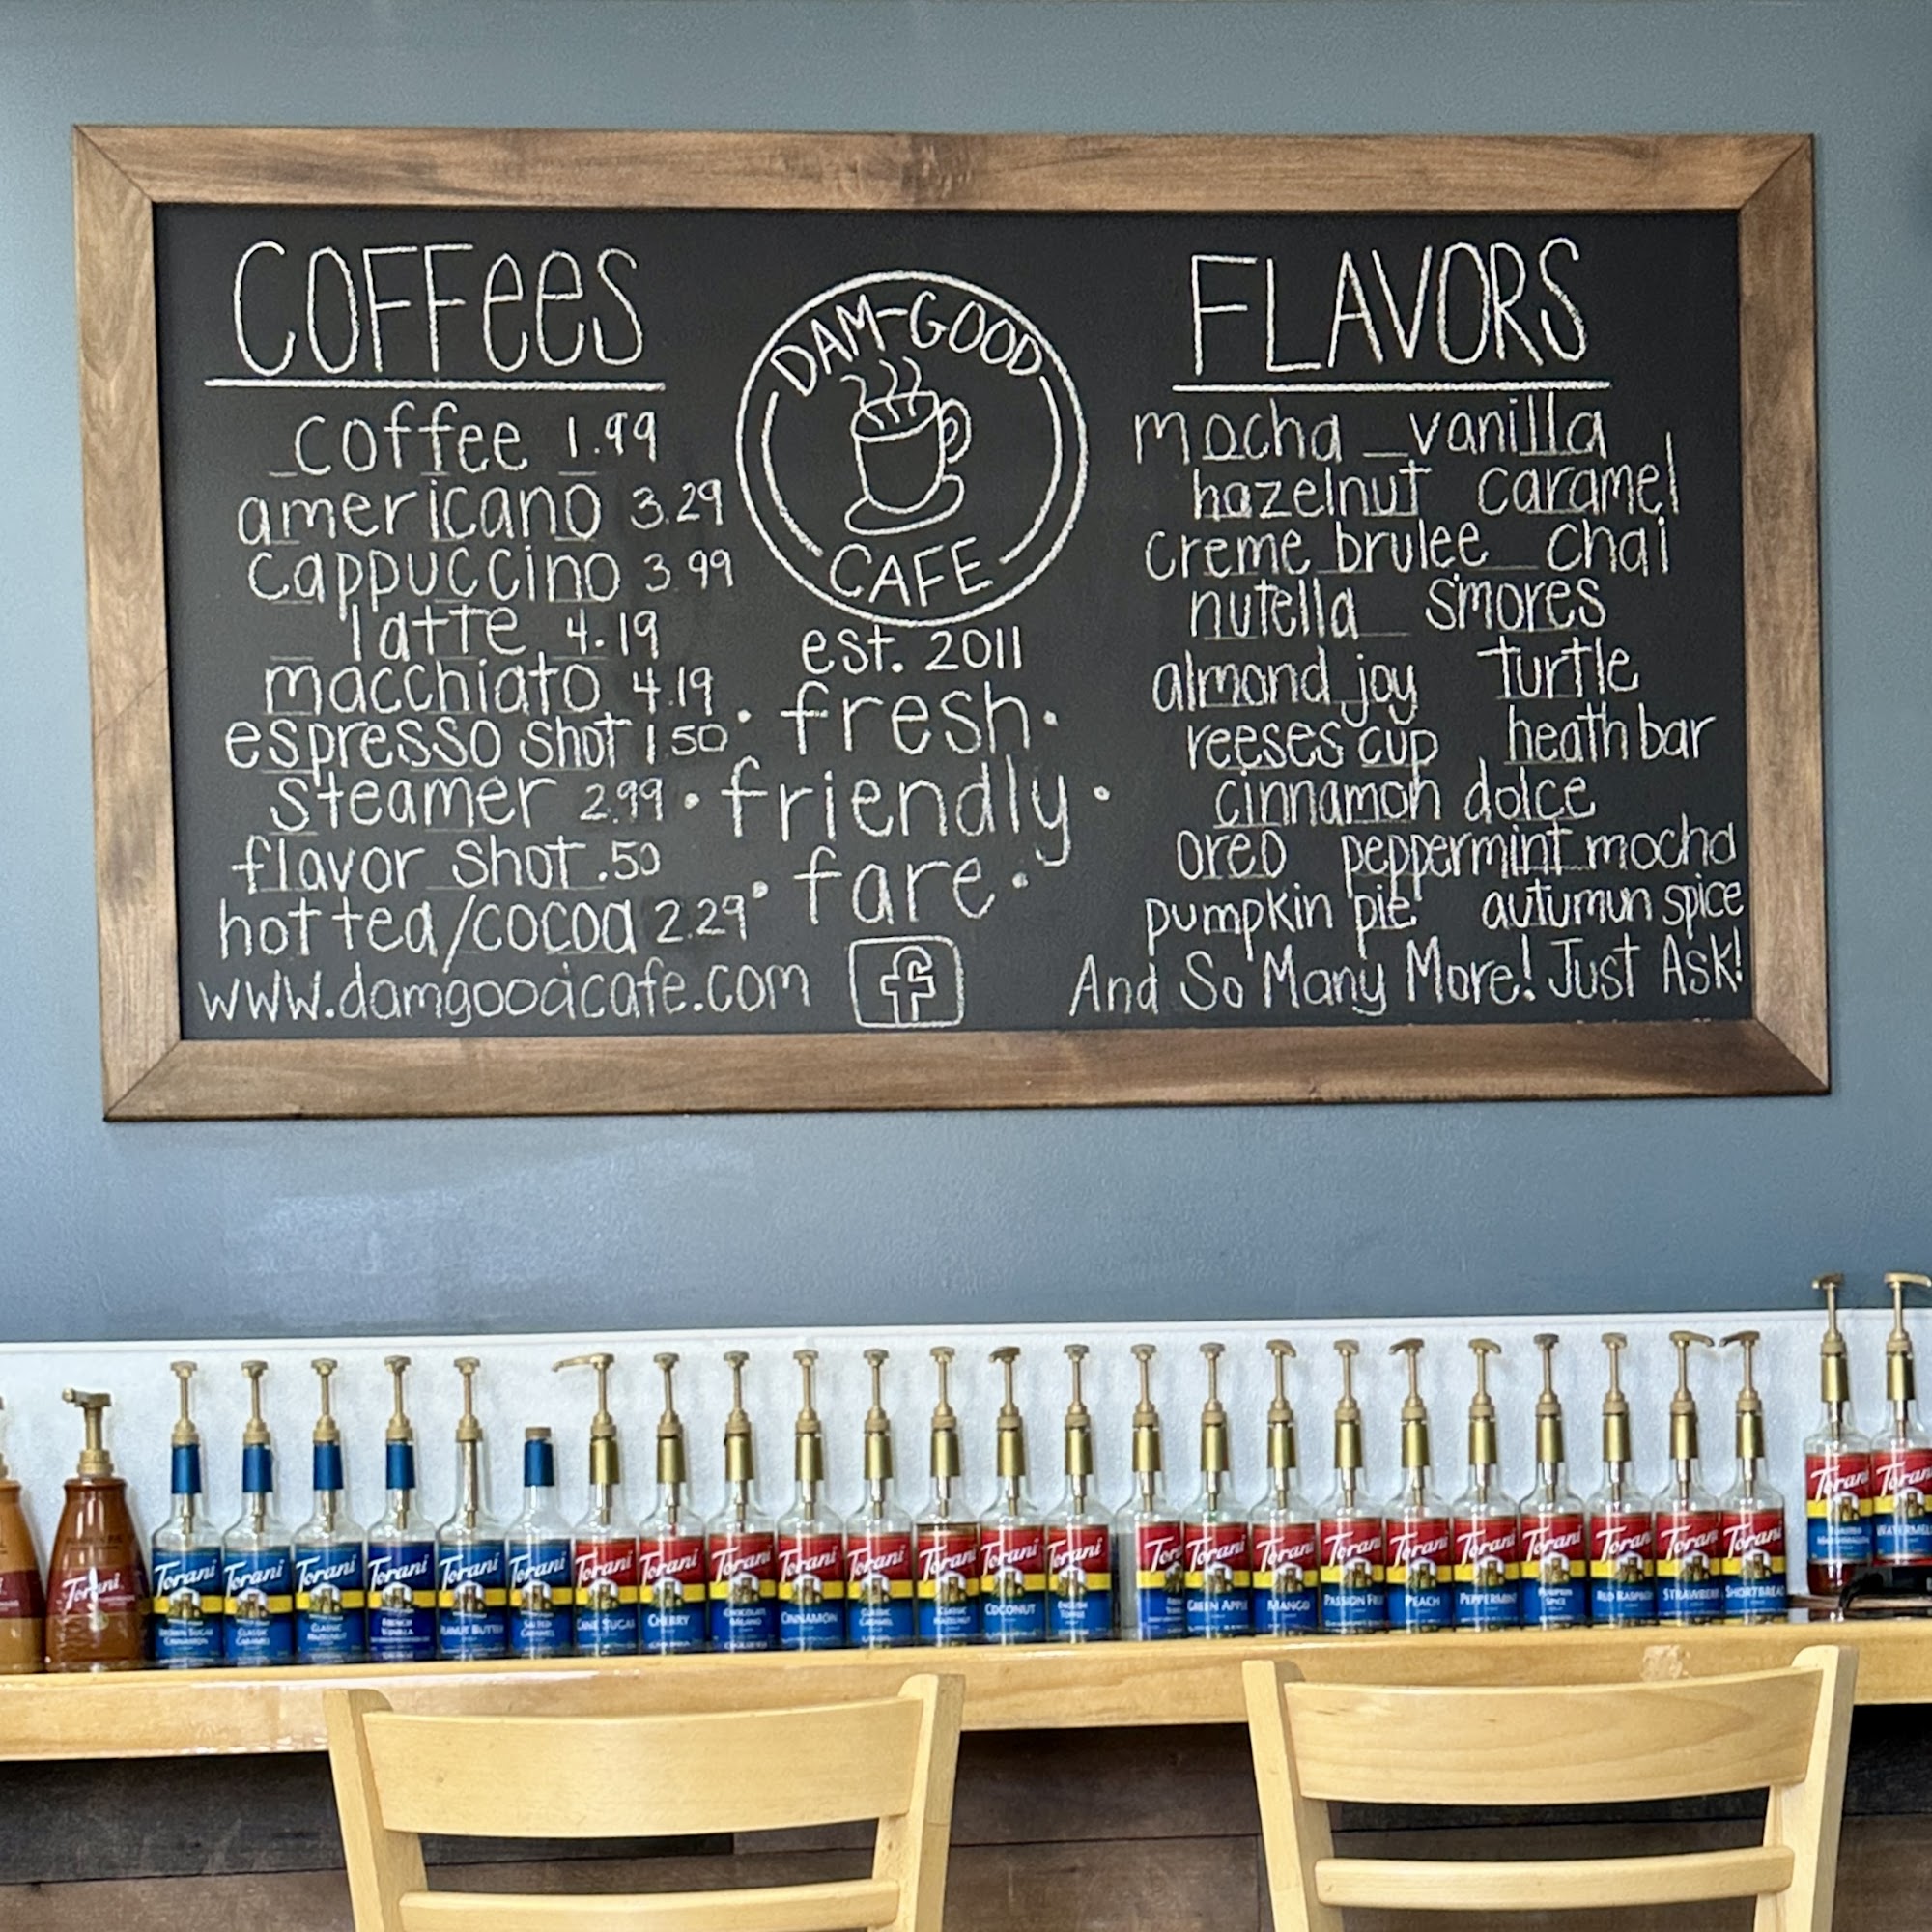 COFFees
coffee 1.99
americano 3.29
cappuccino 3.99
latte 4.19
macchiato 4.19
espresso shot 1.50
steamer 2.99
flavor shot .50
hot tea/cocoa 2.29
www.damgoodcafe.com
DAM-GOOD
CAFE
est. 2011
• fresh •
• friendly •
• fare •
f
FLAVORS
mocha vanilla
hazelnut caramel
creme brulee chai
nutella s'mores
almond joy turtle
reeses cup heath bar
cinnamon dolce
oreo peppermint mocha
pumpkin pie autumun spice
And So Many More! Just Ask!
Torani
Torani BROWN SUGAR CINNAMON
Torani CLASSIC CARAMEL
Torani CLASSIC HAZELNUT
Torani FRENCH VANILLA
Torani PEANUT BUTTER
Torani SALTED CARAMEL
Torani CANE SUGAR
Torani CHERRY
Torani CHOCOLATE MILANO
Torani CINNAMON
Torani CLASSIC CARAMEL
Torani CLASSIC HAZELNUT
Torani COCONUT
Torani ENGLISH TOFFEE
Torani
Torani GREEN APPLE
Torani MANGO
Torani PASSION FRUIT
Torani PEACH
Torani PEPPERMINT
Torani PUMPKIN SPICE
Torani RED RASPBERRY
Torani STRAWBERRY
Torani SHORTBREAD
Torani TOASTED MARSHMALLOW
Torani WATERMELON